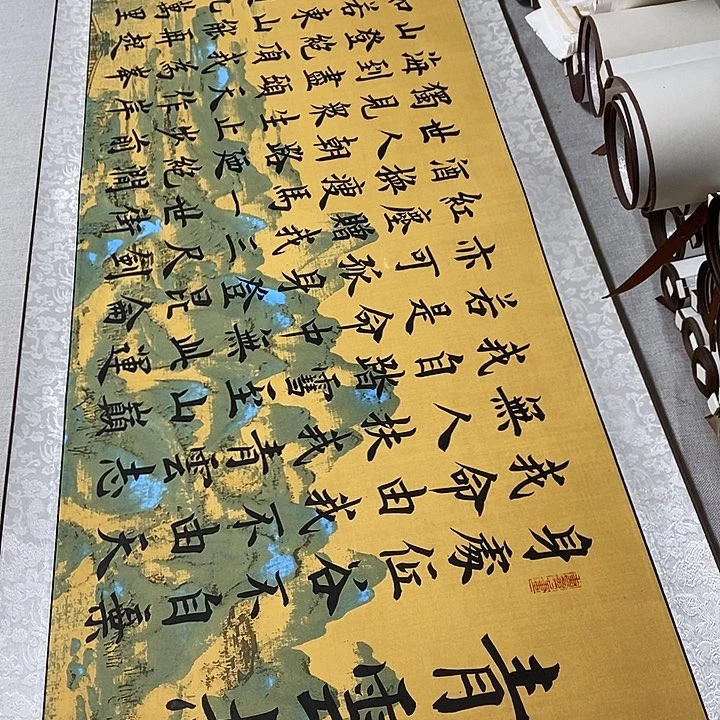 青雲志
身處低谷不自棄
我命由我不由天
無人扶我青雲志
我自踏雪至山巔
若是命中無此運
亦可孤身登昆侖
紅塵贈我三尺劍
酒瘦馬一世街
世人朝路絕間
獨見眾生止步前
海到盡頭天作岸
山登絕頂我為峰
如若東山能再起
萬里